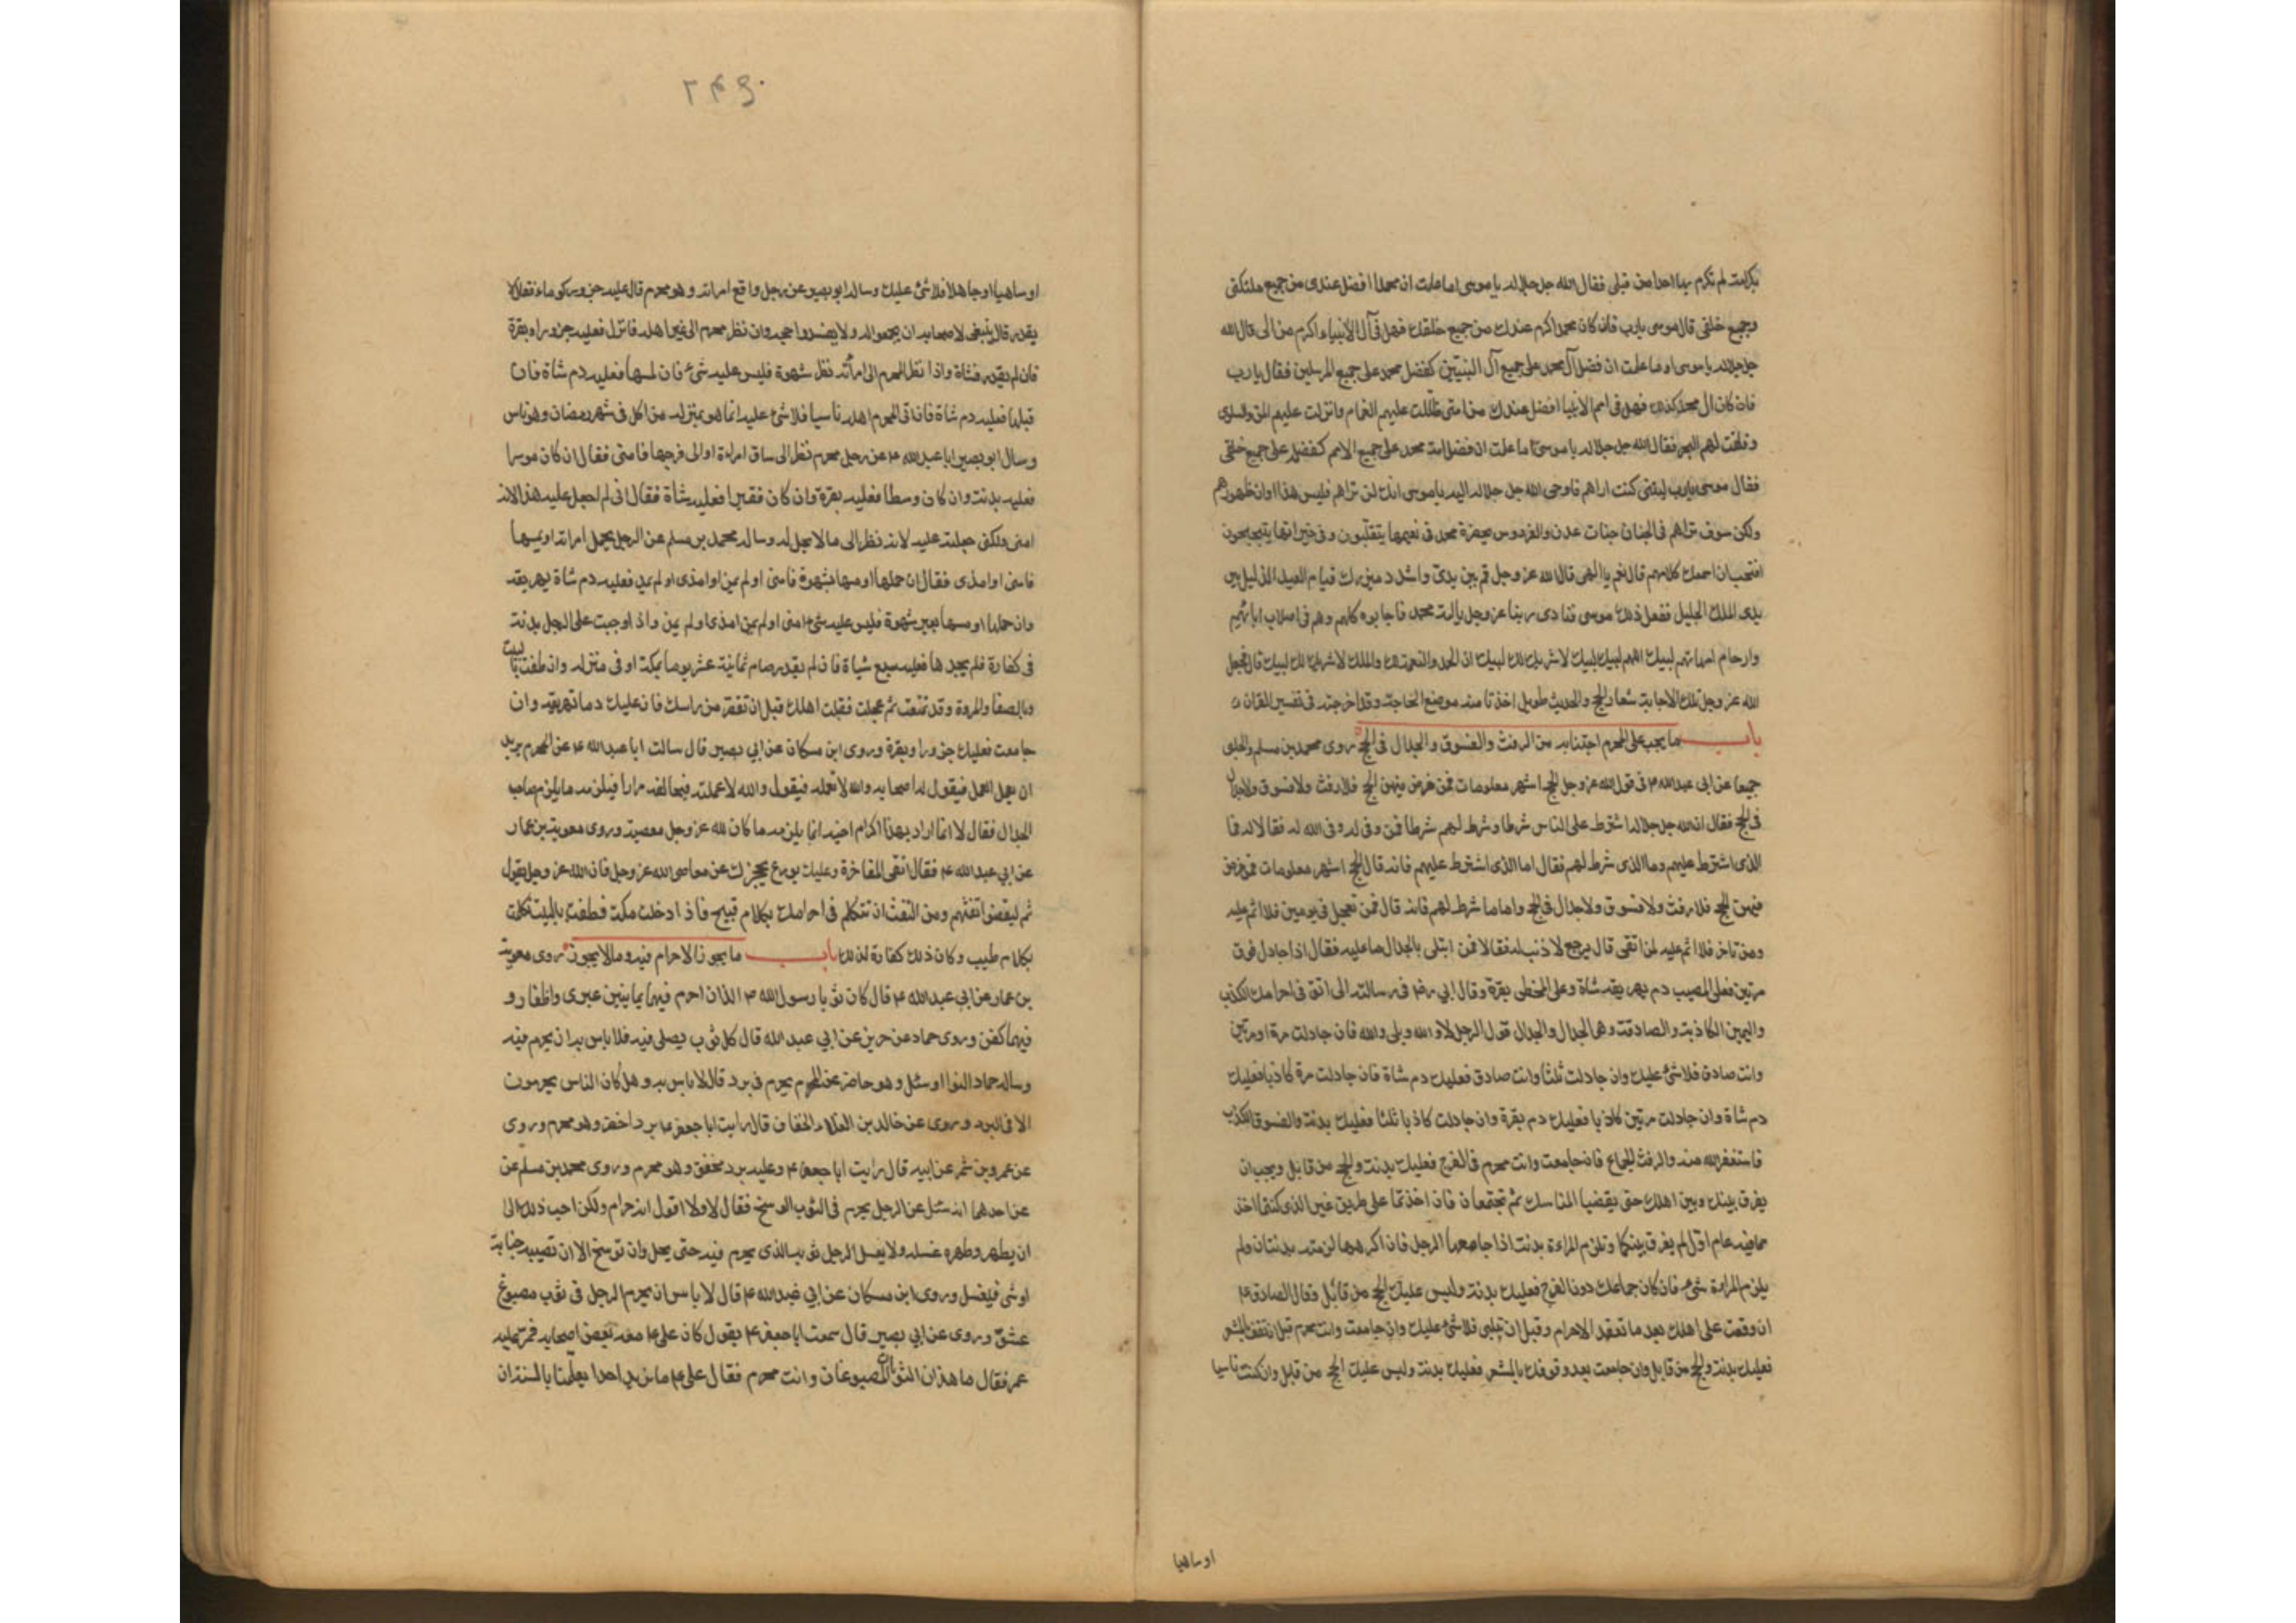 بكرامة لم تكرم بها احدا من قبلى فقال الله جل جلاله يا موسى اما علمت ان محمدا افضل عندى من جميع ملئكتى
وجميع خلقى قال موسى يارب فان كان محمد اكرم عندك من جميع خلقك فهل فى آل الانبياء اكرم من الى قال الله
جل جلاله يا موسى اوما علمت ان فضل آل محمد على جميع آل النبيين كفضل محمد على جميع المرسلين فقال يا رب
فان كان ال محمد كذلك فهل فى امم الانبيا افضل عندك من امتى ظللت عليهم الغمام وانزلت عليهم المن والسلوى
وفلقت لهم البحر فقال الله جل جلاله يا موسى اما علمت ان فضل امة محمد على جميع الامم كفضله على جميع خلقى
فقال موسى يارب ليتنى كنت اراهم فاوحى الله جل جلاله اليه يا موسى انك لن تراهم فليس هذا اوان ظهورهم
ولكن سوف تراهم فى الجنان جنات عدن والفردوس بحضرة محمد فى نعيمها يتقلبون وفى خيراتها يتبحبحون
افتحب ان اسمعك كلامهم قال نعم يا الهى قال الله عز وجل قم بين يدى واشدد ميزرك قيام العبد الذليل بين
يدى الملك الجليل ففعل ذلك موسى فنادى ربنا عز وجل يا امة محمد فاجابوه كلهم وهم فى اصلاب ابائهم
وارحام امهاتهم لبيك اللهم لبيك لبيك لا شريك لك لبيك ان الحمد والنعمة لك والملك لا شريك لك لبيك قال فجعل
الله عز وجل تلك الاجابة شعار الحج والحديث طويل اخذنا منه موضع الحاجة وقد اخرجته فى تفسير القران
باب ما يجب على المحرم اجتنابه من الرفث والفسوق والجدال فى الحج روى محمد بن مسلم والحلبى
جميعا عن ابى عبدالله ع فى قول الله عز وجل الحج اشهر معلومات فمن فرض فيهن الحج فلا رفث ولا فسوق ولا جدال
فى الحج فقال ان الله جل جلاله اشترط على الناس شرطا وشرط لهم شرطا فمن وفى له وفى الله له فقالا له فما
الذى اشترط عليهم وما الذى شرط لهم فقال اما الذى اشترط عليهم فانه قال الحج اشهر معلومات فمن فرض
فيهن الحج فلا رفث ولا فسوق ولا جدال فى الحج واما ما شرط لهم فانه قال فمن تعجل فى يومين فلا اثم عليه
ومن تاخر فلا اثم عليه لمن اتقى قال يرجع لا ذنب له فقالا فمن ابتلى بالجدال ما عليه فقال اذا جادل فوق
مرتين فعلى المصيب دم يهريقه شاة وعلى المخطى بقرة وقال ابي رض فى رسالته الى اتق فى احرامك الكذب
واليمين الكاذبة والصادقة وهى الجدال والجدال قول الرجل لا والله وبلى والله فان جادلت مرة او مرتين
وانت صادق فلا شئ عليك وان جادلت ثلثا وانت صادق فعليك دم شاة فان جادلت مرة كاذبا فعليك
دم شاة وان جادلت مرتين كاذبا فعليك دم بقرة وان جادلت كاذبا ثلثا فعليك بدنة والفسوق الكذب
فاستغفر الله منه والرفث الجماع فان جامعت وانت محرم فى الفرج فعليك بدنة والحج من قابل ويجب ان
يفرق بينك وبين اهلك حتى يقضيا المناسك ثم تجتمعان فان اخذتما على طريق غير الذى كنتما اخذ
تما فيه عام اول لم يفرق بينكما وتلزم المراءة بدنة اذا جامعها الرجل فان اكرهها لزمته بدنتان ولم
يلزم المراءة شئ فان كان جماعك دون الفرج فعليك بدنة وليس عليك الحج من قابل وقال الصادق ع
ان وقعت على اهلك بعد ما تعقد الاحرام وقبل ان تلبى فلا شئ عليك وان جامعت وانت محرم قبل ان تقف بالمشعر
فعليك بدنة والحج من قابل وان جامعت بعد وقوفك بالمشعر فعليك بدنة وليس عليك الحج من قابل وان كنت ناسيا
او ساهيا
۲۴۹
او ساهيا او جاهلا فلا شئ عليك وساله ابو بصير عن رجل واقع امراته وهو محرم قال عليه جزور كوماء فقال لا
يقدر قال ينبغى لاصحابه ان يجمعوا له ولا يفسدوا حجه وان نظر محرم الى غير اهله فانزل فعليه جزور او بقرة
فان لم يقدر فشاة واذا نظر المحرم الى امرأته نظر شهوة فليس عليه شئ فان لمسها فعليه دم شاة فان
قبلها فعليه دم شاة فان اتى المحرم اهله ناسيا فلا شئ عليه انما هو بمنزله من اكل فى شهر رمضان وهو ناس
وسال ابو بصير ابا عبدالله ع عن رجل محرم نظر الى ساق امراءة او الى فرجها فامنى فقال ان كان موسرا
فعليه بدنة وان كان وسطا فعليه بقرة وان كان فقيرا فعليه شاة فقال انى لم اجعل عليه هذا لانه
امنى ولكنى جعلته عليه لانه نظر الى ما لا يحل له وساله محمد بن مسلم عن الرجل يحمل امراته او يمسها
فامنى او امذى فقال ان حملها او مسها بشهوة فامنى او لم يمن او امذى او لم يمذ فعليه دم شاة يهريقه
وان حملها او مسها بغير شهوة فليس عليه شئ امنى او لم يمن امذى او لم يمن واذا وجبت على الرجل بدنة
فى كفارة فلم يجدها فعليه سبع شياة فان لم يقدر صام ثمانية عشر يوما بمكة او فى منزله وان طفت بالبيت
وبالصفا والمروة وقد تمتعت ثم عجلت فقبلت اهلك قبل ان تقصر من راسك فان عليك دما تهريقه وان
جامعت فعليك جزورا وبقرة وروى ابن مسكان عن ابي بصير قال سالت ابا عبدالله ع عن المحرم يريد
ان يعمل العمل فيقول له اصحابه والله لا تعمله فيقول والله لاعملنه فيحالفه مرارا فيلزمه ما يلزم صاحب
الجدال فقال لا انما اراد بهذا اكرام اخيه انما يلزمه ما كان لله عز وجل معصية وروى معوية بن عمار
عن ابي عبدالله ع فقال اتقى المفاخرة وعليك بورع يحجزك عن معاصى الله عز وجل فان الله عز وجل يقول
ثم ليقضوا تفثهم ومن التفث ان تتكلم فى احرامك بكلام قبيح فاذا دخلت مكة فطفت بالبيت تكلمت
بكلام طيب وكان ذلك كفارة لذلك باب ما يجوز الاحرام فيه وما لا يجوز روى معوية
بن عمار عن ابي عبدالله ع قال كان ثوبا رسول الله ص الذان احرم فيهما يمانيين عبرى واظفار و
فيهما كفن وروى حماد عن حريز عن ابي عبدالله قال كل ثوب يصلى فيه فلا باس به ان يحرم فيه
وساله حماد النوا او سئل وهو حاضر عن المحرم يحرم فى برد قال لا باس به وهل كان الناس يحرمون
الا فى البرد وروى عن خالد بن العلاء الخفاف قال رايت ابا جعفر ع برد اخضر وهو محرم وروى
عن عمرو بن شمر عن ابيه قال رايت ابا جعفر ع وعليه برد مخفف وهو محرم وروى محمد بن مسلم عن
عن احدهما انه سئل عن الرجل يحرم فى الثوب الوسخ فقال لا ولا اقول انه حرام ولكن احب ذلك الى
ان يطهر وطهره غسله ولا يغسل الرجل ثوبه الذى يحرم فيه حتى يحل وان توسخ الا ان تصيبه جنابة
او شئ فيغسل وروى ابن مسكان عن ابي عبدالله ع قال لا باس ان يحرم الرجل فى ثوب مصبوغ
عشق وروى عن ابي بصير قال سمعت ابا جعفر ع يقول كان على ع معه بعض اصحابه فمر عليه
عمر فقال ما هذان الثوبان المصبوغان وانت محرم فقال على ع ما نريد احدا يعلمنا بالسنة ان